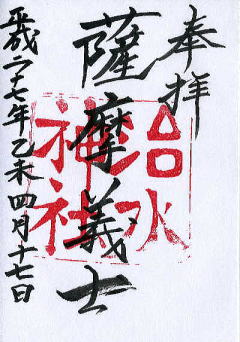 奉拝
薩摩義士
治水
神社
平成二十七年乙未四月十七日